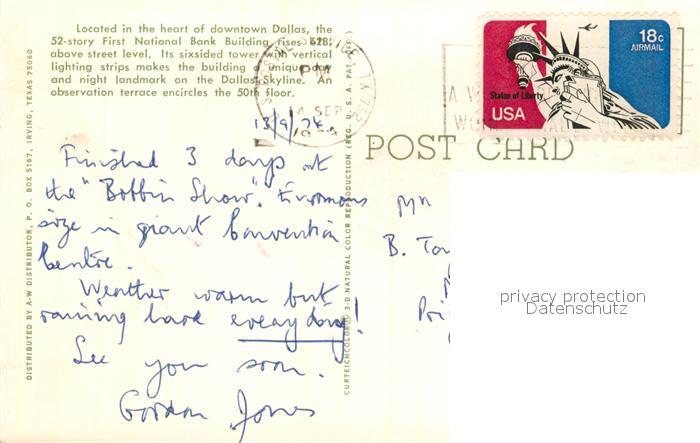 Located in the heart of downtown Dallas, the
52-story First National Bank Building rises 628'
above street level. Its sixsided tower with vertical
lighting strips makes the building a unique day
and night landmark on the Dallas Skyline. An
observation terrace encircles the 50th floor.
13/9/74
Finished 3 days at
the "Bobbin Show". Enormous
size in giant Convention
Centre.
Weather warm but
raining hard every day!
See you soon.
Gordon Jones
DISTRIBUTED BY A-W DISTRIBUTOR, P. O. BOX 5167, IRVING, TEXAS 75060
CURTEICHCOLOR® 3-D NATURAL COLOR REPRODUCTION (REG. U. S. A. PAT. OFF.)
POST CARD
18c
AIRMAIL
Statue of Liberty
USA
PM
14 SEP
TX 752
B.
privacy protection
Datenschutz